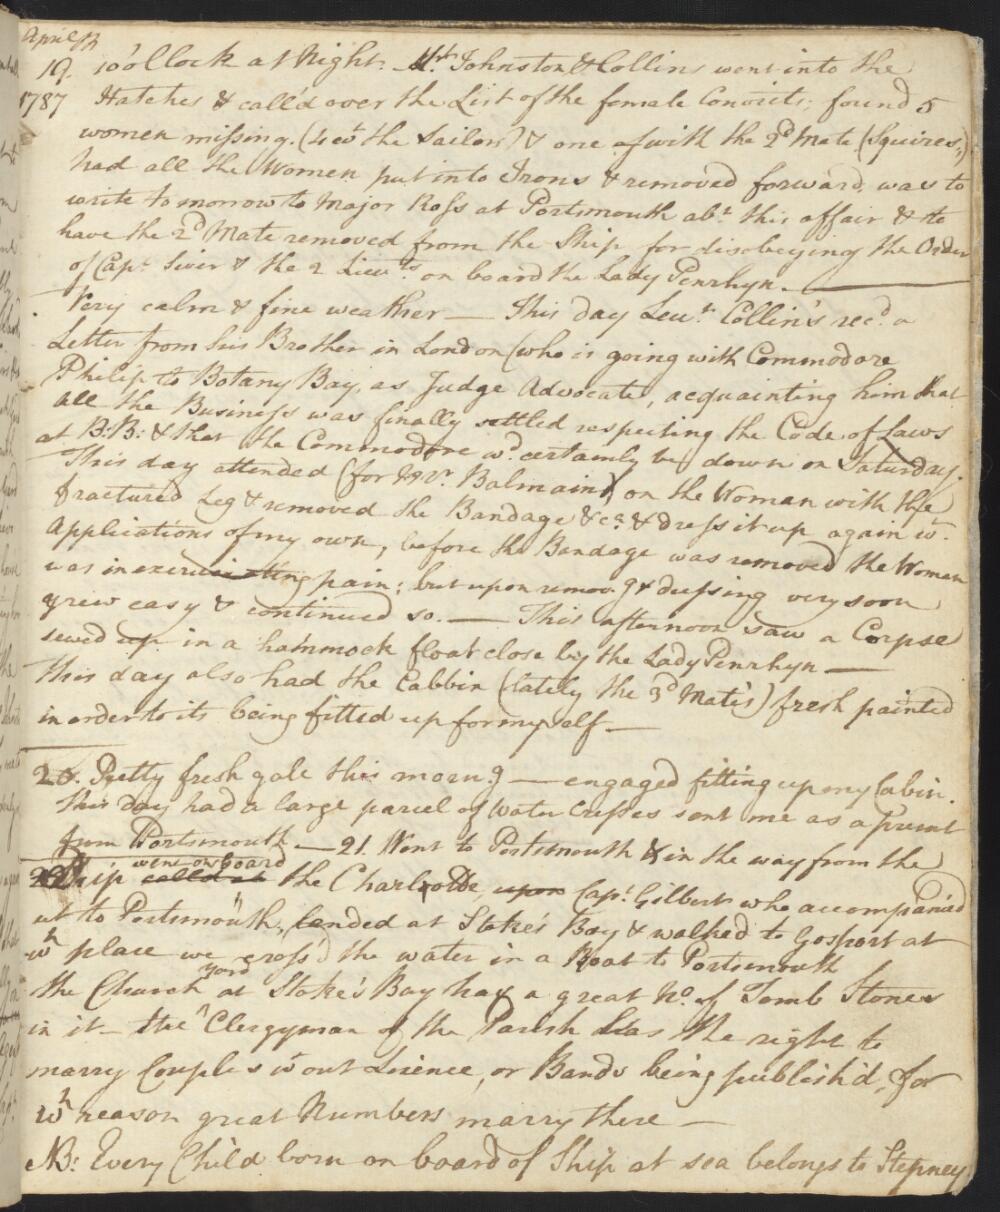 April th
19. 10 o'Clock at Night. Mr. Johnston & Collins went into the
1787 Hatches & call'd over the List of the female Convicts; found 5
women missing. (4 wt the Sailors) & one wth the 2d Mate (Squires,)
had all the Women put into Irons & removed forward, was to
write tomorrow to Major Ross at Portsmouth abt this affair & to
have the 2d Mate removed from the Ship for disobeying the Order
of Capt Siver & the 2 Lieuts on board the Lady Penrhyn. —
Very calm & fine weather — This day Leut Collins recd. a
Letter from his Brother in London (who is going with Commodore
Philip to Botany Bay, as Judge Advocate, acquainting him that
all the Business was finally settled respecting the Code of Laws
at B:B: & that the Commodore wd. certainly be down on Saturday.
This day attended (for Mr. Balmain) on the Woman with the
fractured Leg & removed the Bandage &ca. & dress it up again wt.
Applications of my own, before the Bandage was removed the Woman
was in excruciating pain; but upon removg & dressing very soon
grew easy & continued so. — This afternoon saw a Corpse
sewed up in a hammock float close by the Lady Penrhyn —
This day also had the Cabbin (lately the 3d Mate's) fresh painted
in order to its being fitted up for myself —
20. Pretty fresh gale this morng — engaged fitting up my Cabin.
this day had a large parcel of Water Cresses sent me as a present
from Portsmouth — 21 Went to Portsmouth & in the way from the
went on board
Ship call'd at the Charlotte, upon Capt. Gilbert who accompanied
us to Portsmouth, landed at Stoke's Bay & walked to Gosport at
wh place we cross'd the water in a Boat to Portsmouth
yard
the Church at Stoke's Bay has a great No. of Tomb Stones
in it — the Clergyman of the Parish has the right to
marry Couples wtout Lisence, or Bands being publish'd, for
wh reason great Numbers marry there —
NB: Every Child born on board of Ship at sea belongs to Stepney